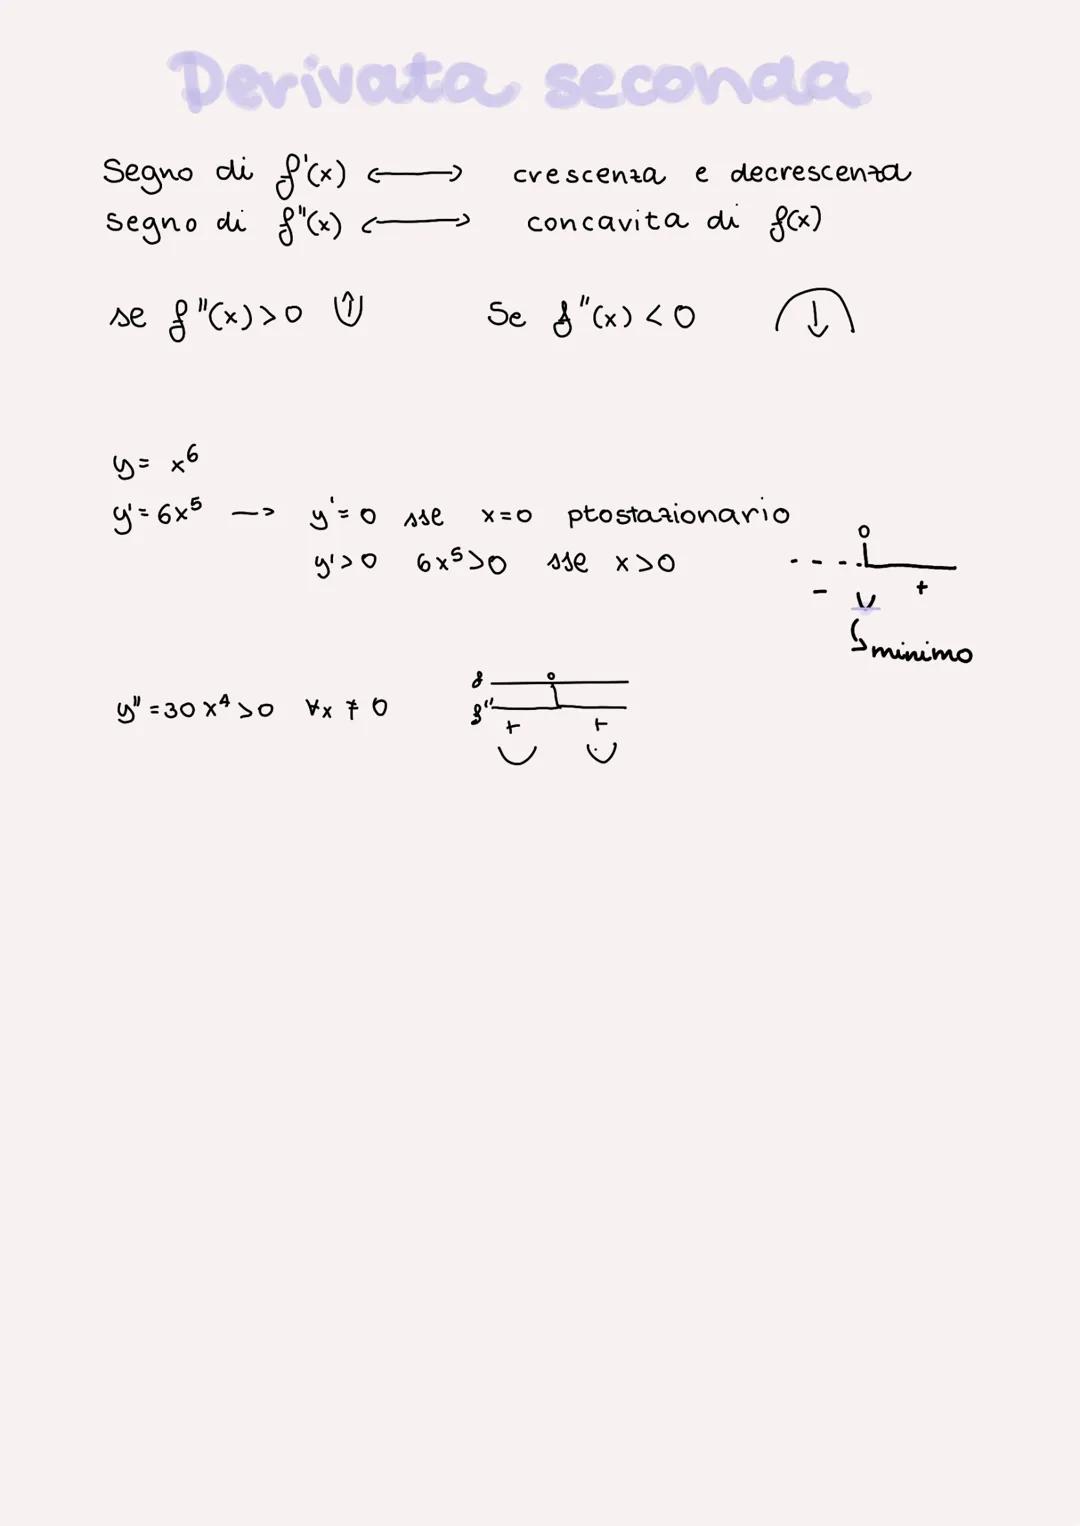 Derivata seconda
Segno di f'(x) ⟷ crescenza e decrescenza
segno di f"(x) ⟷ concavita di f(x)
se f"(x)>0 ↑ Se f"(x)<0 ↓
y= x⁶
y'=6x⁵ → y'=0 sse x=0 ptostazionario
y'>0 6x⁵>0 sse x>0
0
- +
minimo
y"=30x⁴>0 ∀x≠0
f 0
f"
+ +